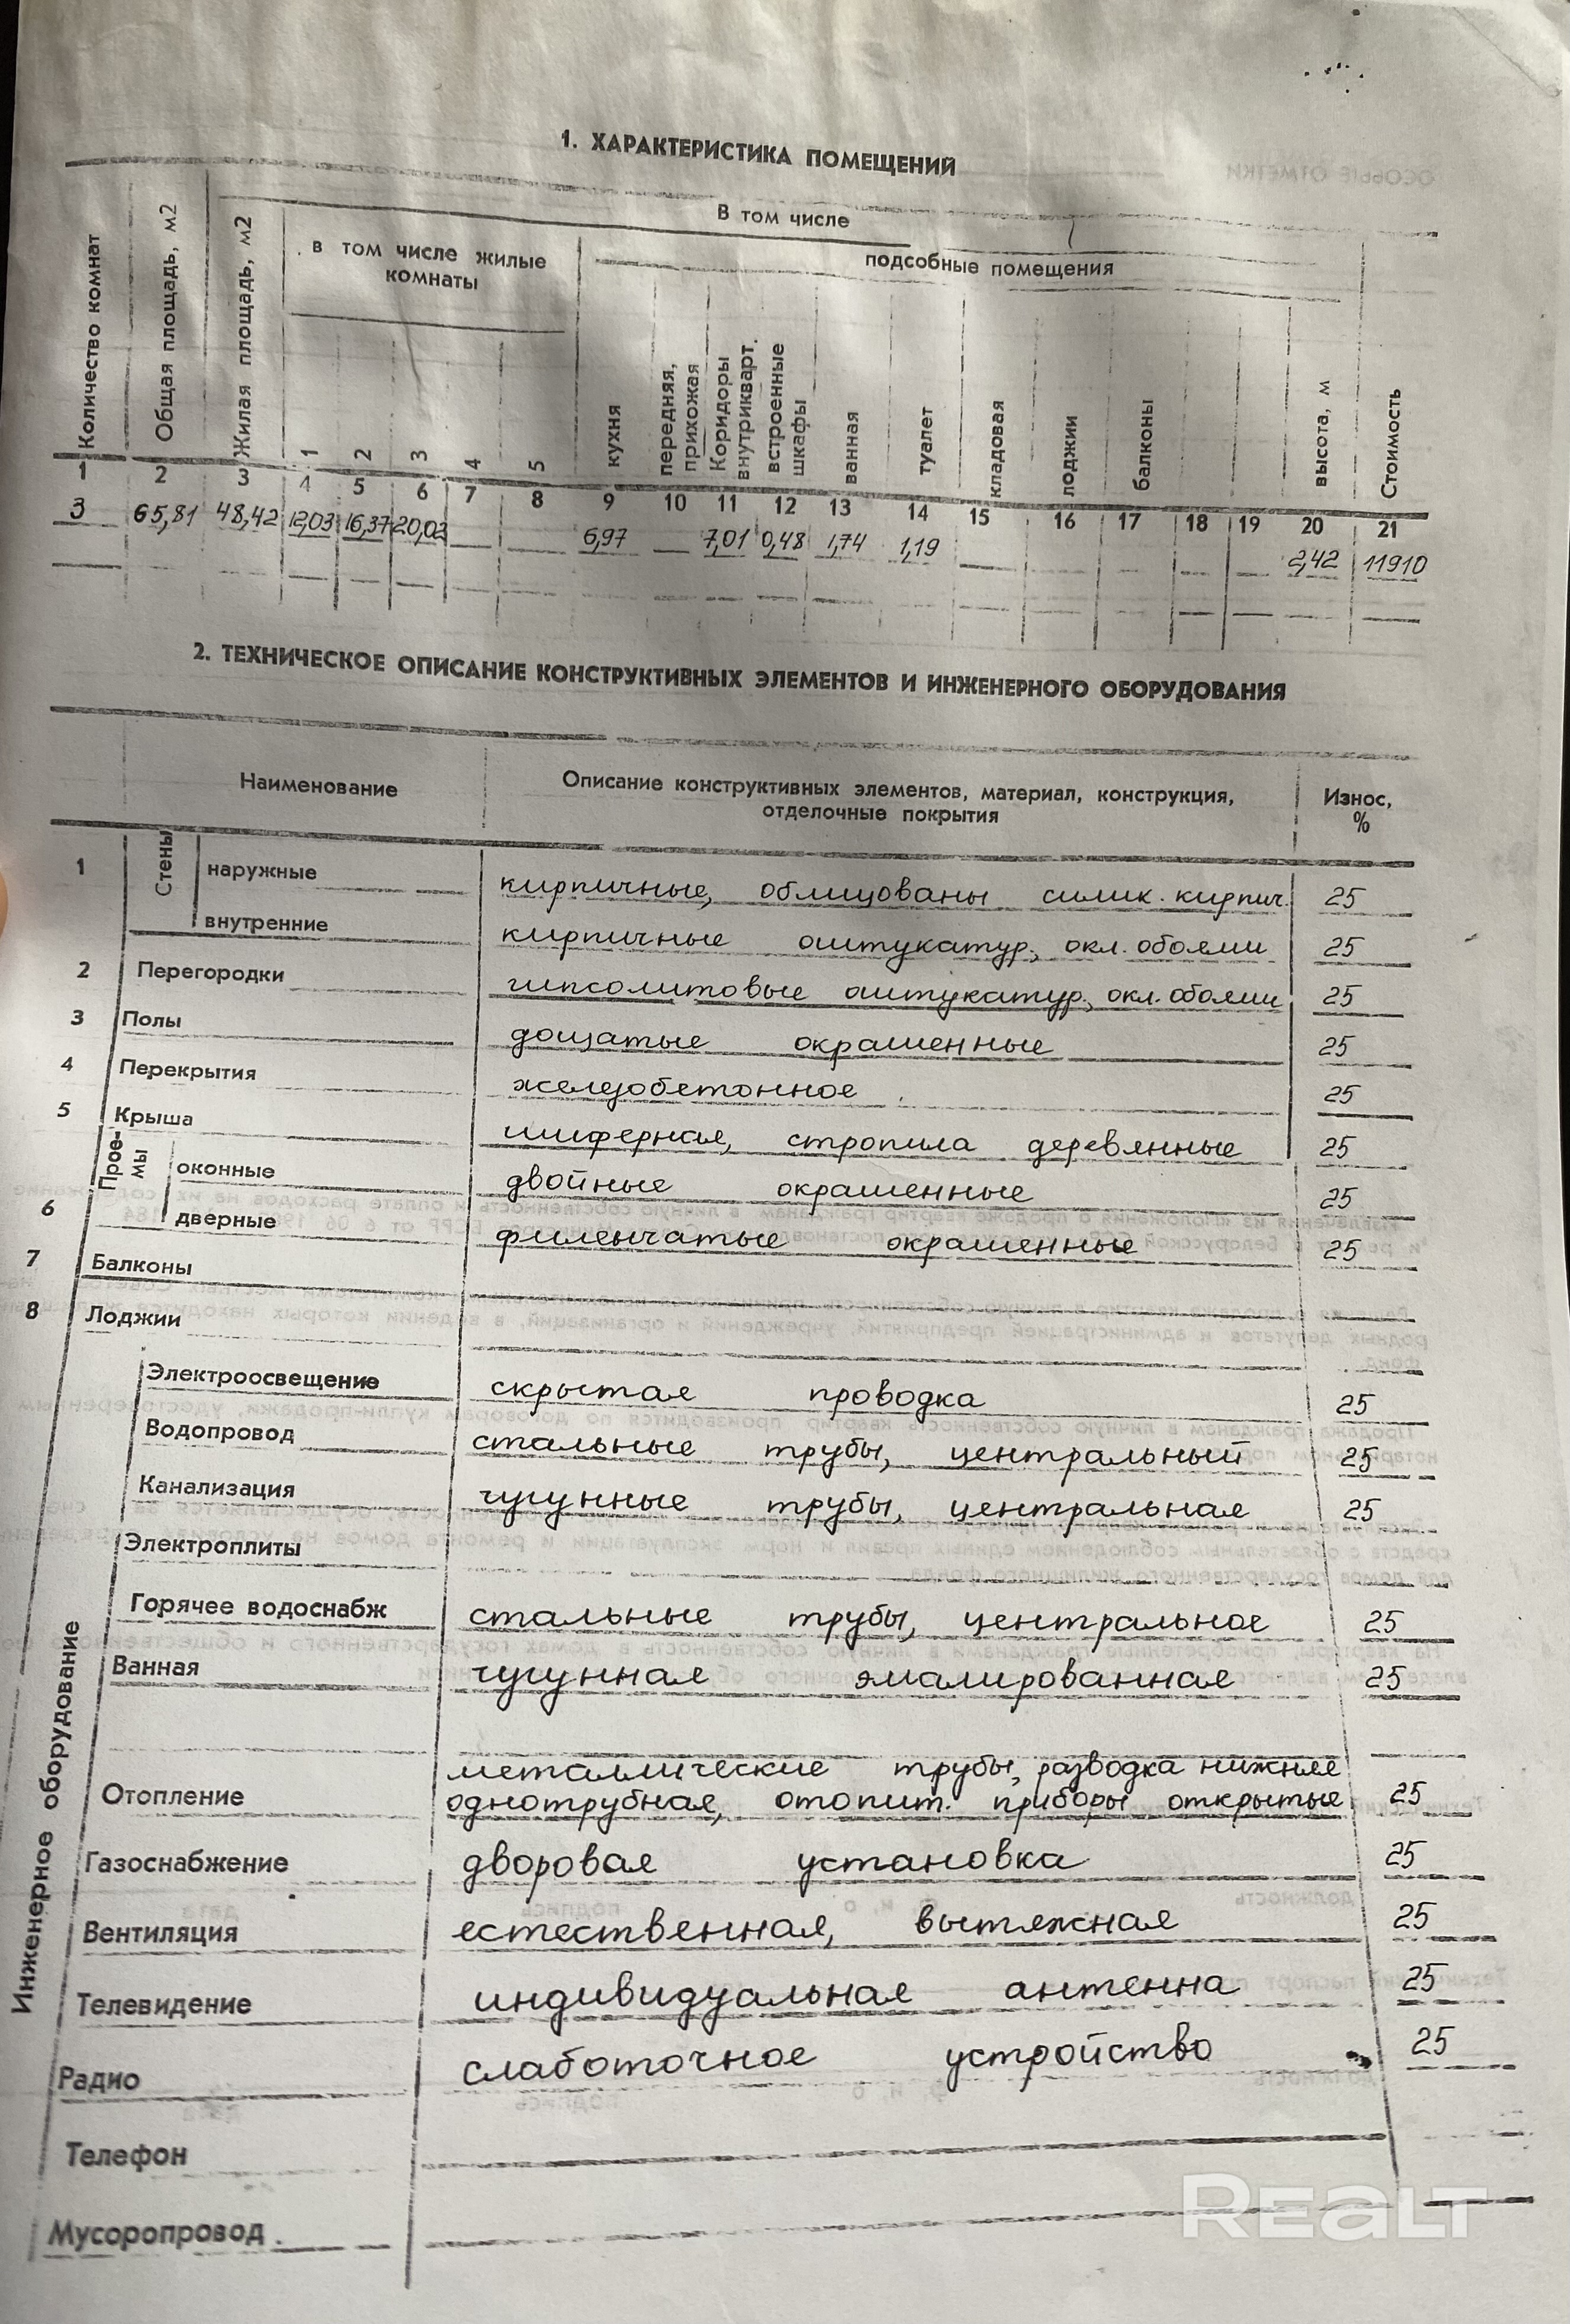 1. ХАРАКТЕРИСТИКА ПОМЕЩЕНИЙ
ОСОБЫЕ ОТМЕТКИ
Количество комнат
Общая площадь, м2
Жилая площадь, м2
В том числе
в том числе жилые
комнаты
подсобные помещения
1
2
3
4
5
кухня
передняя,
прихожая
Коридоры
внутрикварт.
встроенные
шкафы
ванная
туалет
кладовая
лоджии
балконы
высота, м
Стоимость
1 2 3 4 5 6 7 8 9 10 11 12 13 14 15 16 17 18 19 20 21
3 65,81 48,42 12,03 16,37 20,02 6,97 — 7,01 0,48 1,74 1,19 2,42 11910
2. ТЕХНИЧЕСКОЕ ОПИСАНИЕ КОНСТРУКТИВНЫХ ЭЛЕМЕНТОВ И ИНЖЕНЕРНОГО ОБОРУДОВАНИЯ
Наименование Описание конструктивных элементов, материал, конструкция, Износ,
отделочные покрытия %
1 Стены наружные кирпичные, облицованы силик. кирпич. 25
внутренние кирпичные оштукатур., окл. обоями 25
2 Перегородки гипсолитовые оштукатур., окл. обоями 25
3 Полы дощатые окрашенные 25
4 Перекрытия железобетонное 25
5 Крыша шиферная, стропила деревянные 25
6 Прое-
мы
оконные двойные окрашенные 25
дверные филенчатые окрашенные 25
7 Балконы
8 Лоджии
Инженерное оборудование
Электроосвещение скрытая проводка 25
Водопровод стальные трубы, центральный 25
Канализация чугунные трубы, центральная 25
Электроплиты
Горячее водоснабж стальные трубы, центральное 25
Ванная чугунная эмалированная 25
металлические трубы, разводка нижняя
Отопление однотрубная, отопит. приборы открытые 25
Газоснабжение дворовая установка 25
Вентиляция естественная, вытяжная 25
Телевидение индивидуальная антенна 25
Радио слаботочное устройство 25
Телефон
Мусоропровод
REALT